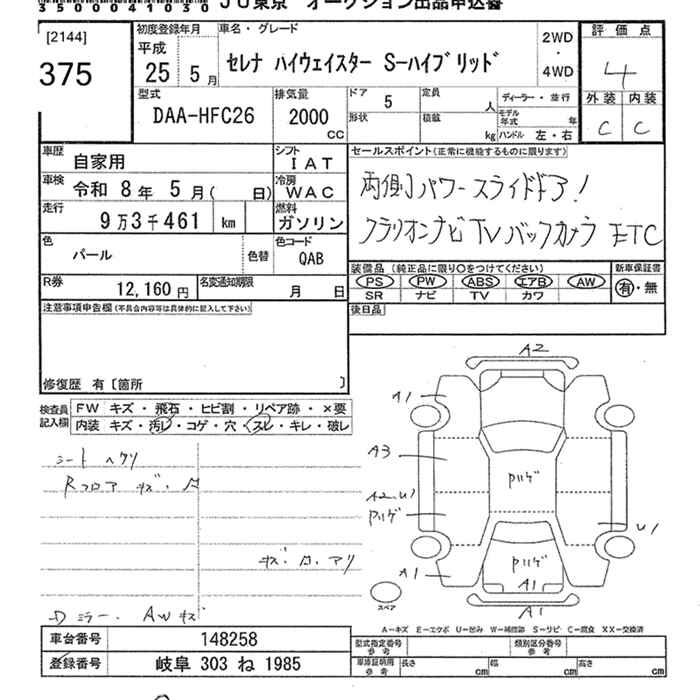 35000041030 JU東京 オークション出品申込書
[2144]
375
初度登録年月
平成
25 5 月
車名・グレード
セレナ ハイウェイスター S-ハイブリッド
2WD
・
4WD
評価点
4
外装 内装
C C
型式
DAA-HFC26
排気量
2000
CC
ドア 5
形状
定員 人
積載 kg
ディーラー・並行
モデル年式 年
ハンドル 左・右
車歴
自家用
シフト
IAT
車検
令和 8年 5月( 日)
冷房
WAC
走行
9万3千461 km
燃料
ガソリン
色
パール
色替
色コード
QAB
R券
12,160円
名変通知期限
月 日
セールスポイント(正常に機能するものに限ります)
両側パワースライドドア!
クラリオンナビ TV バックカメラ ETC
装備品 (純正品に限り○をつけてください)
PS PW ABS エアB AW
SR ナビ TV カワ
新車保証書
有・無
後日品
注意事項申告欄(不具合内容等は具体的に記入して下さい)
修復歴 有〔箇所 〕
検査員
記入欄
FW キズ・飛石・ヒビ割・リペア跡・×要
内装 キズ・汚レ・コゲ・穴・スレ・キレ・破レ
シート ヘタリ
Rフロア キズ・
キズ・ アリ
Dミラー・AWキズ
A2
A1
A3
A2.U1
A1
U1
A1
A1
スペア
A-キズ E-エクボ U-凹み W-補修跡 S-サビ C-腐食 XX-交換済
車台番号
148258
登録番号
岐阜 303 ね 1985
型式指定番号
参考
類別区分番号
参考
車庫証明用
参考
長さ cm
幅 cm
高さ cm